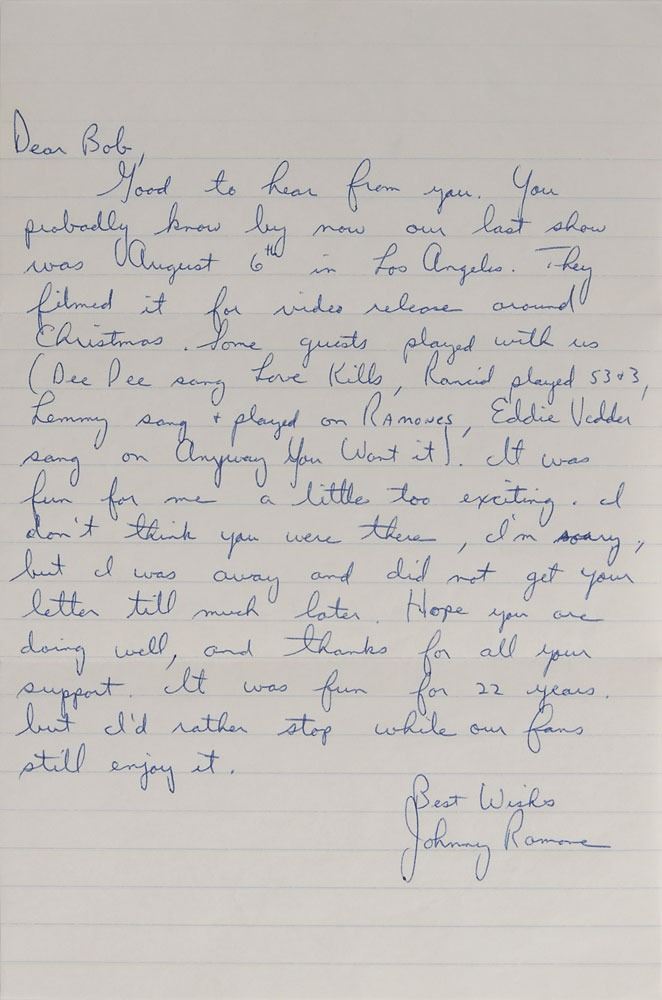 Dear Bob,
Good to hear from you. You
probadly know by now our last show
was August 6th in Los Angeles. They
filmed it for video release around
Christmas. Some guests played with us
(Dee Dee sang Love Kills, Rancid played 53+3,
Lemmy sang + played on RAMONES, Eddie Vedder
sang on Anyway You Want it). It was
fun for me a little too exciting. I
don't think you were there, I'm sorry,
but I was away and did not get your
letter till much later. Hope you are
doing well, and thanks for all your
support. It was fun for 22 years.
but I'd rather stop while our fans
still enjoy it.
Best Wishs
Johnny Ramone